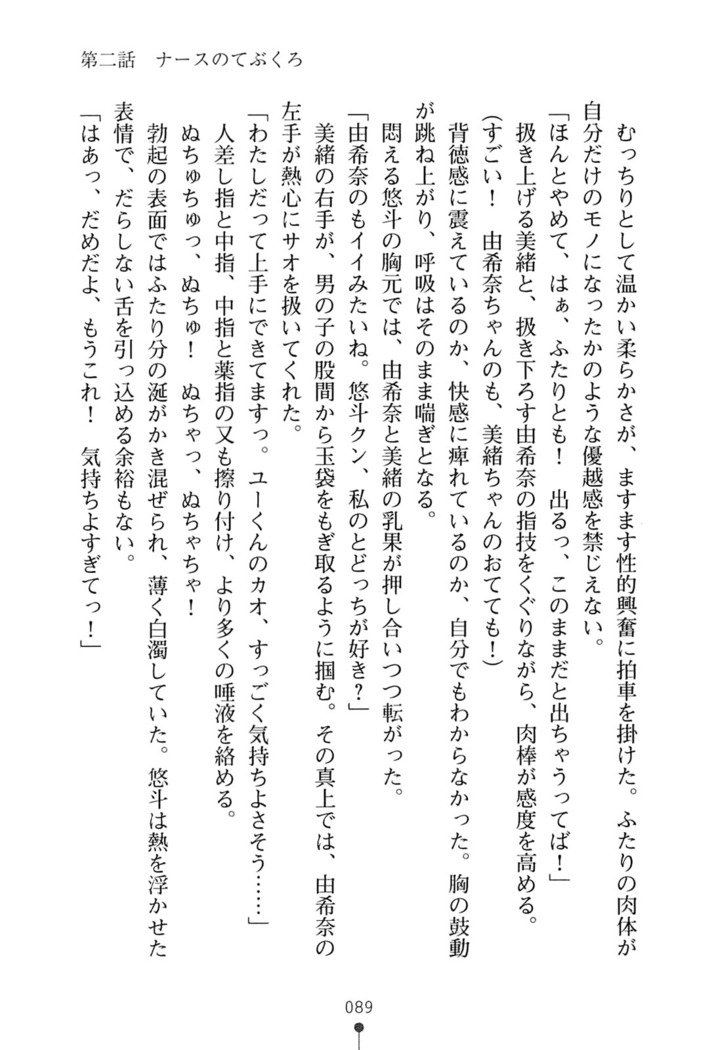 第二話　ナースのてぶくろ
むっちりとして温かい柔らかさが、ますます性的興奮に拍車を掛けた。ふたりの肉体が
自分だけのモノになったかのような優越感を禁じえない。
「ほんとやめて、はぁ、ふたりとも！　出るっ、このままだと出ちゃうってば！」
扱き上げる美緒と、扱き下ろす由希奈の指技をくぐりながら、肉棒が感度を高める。
（すごい！　由希奈ちゃんのも、美緒ちゃんのおてても！）
背徳感に震えているのか、快感に痺れているのか、自分でもわからなかった。胸の鼓動
が跳ね上がり、呼吸はそのまま喘ぎとなる。
悶える悠斗の胸元では、由希奈と美緒の乳果が押し合いつつ転がった。
「由希奈のもイイみたいね。悠斗クン、私のとどっちが好き？」
美緒の右手が、男の子の股間から玉袋をもぎ取るように掴む。その真上では、由希奈の
左手が熱心にサオを扱いてくれた。
「わたしだって上手にできてますっ。ユーくんのカオ、すっごく気持ちよさそう……」
人差し指と中指、中指と薬指の又も擦り付け、より多くの唾液を絡める。
ぬちゅちゅっ、ぬちゅ！　ぬちゃっ、ぬちゃちゃ！
勃起の表面ではふたり分の涎がかき混ぜられ、薄く白濁していた。悠斗は熱を浮かせた
表情で、だらしない舌を引っ込める余裕もない。
「はあっ、だめだよ、もうこれ！　気持ちよすぎてっ！」
089